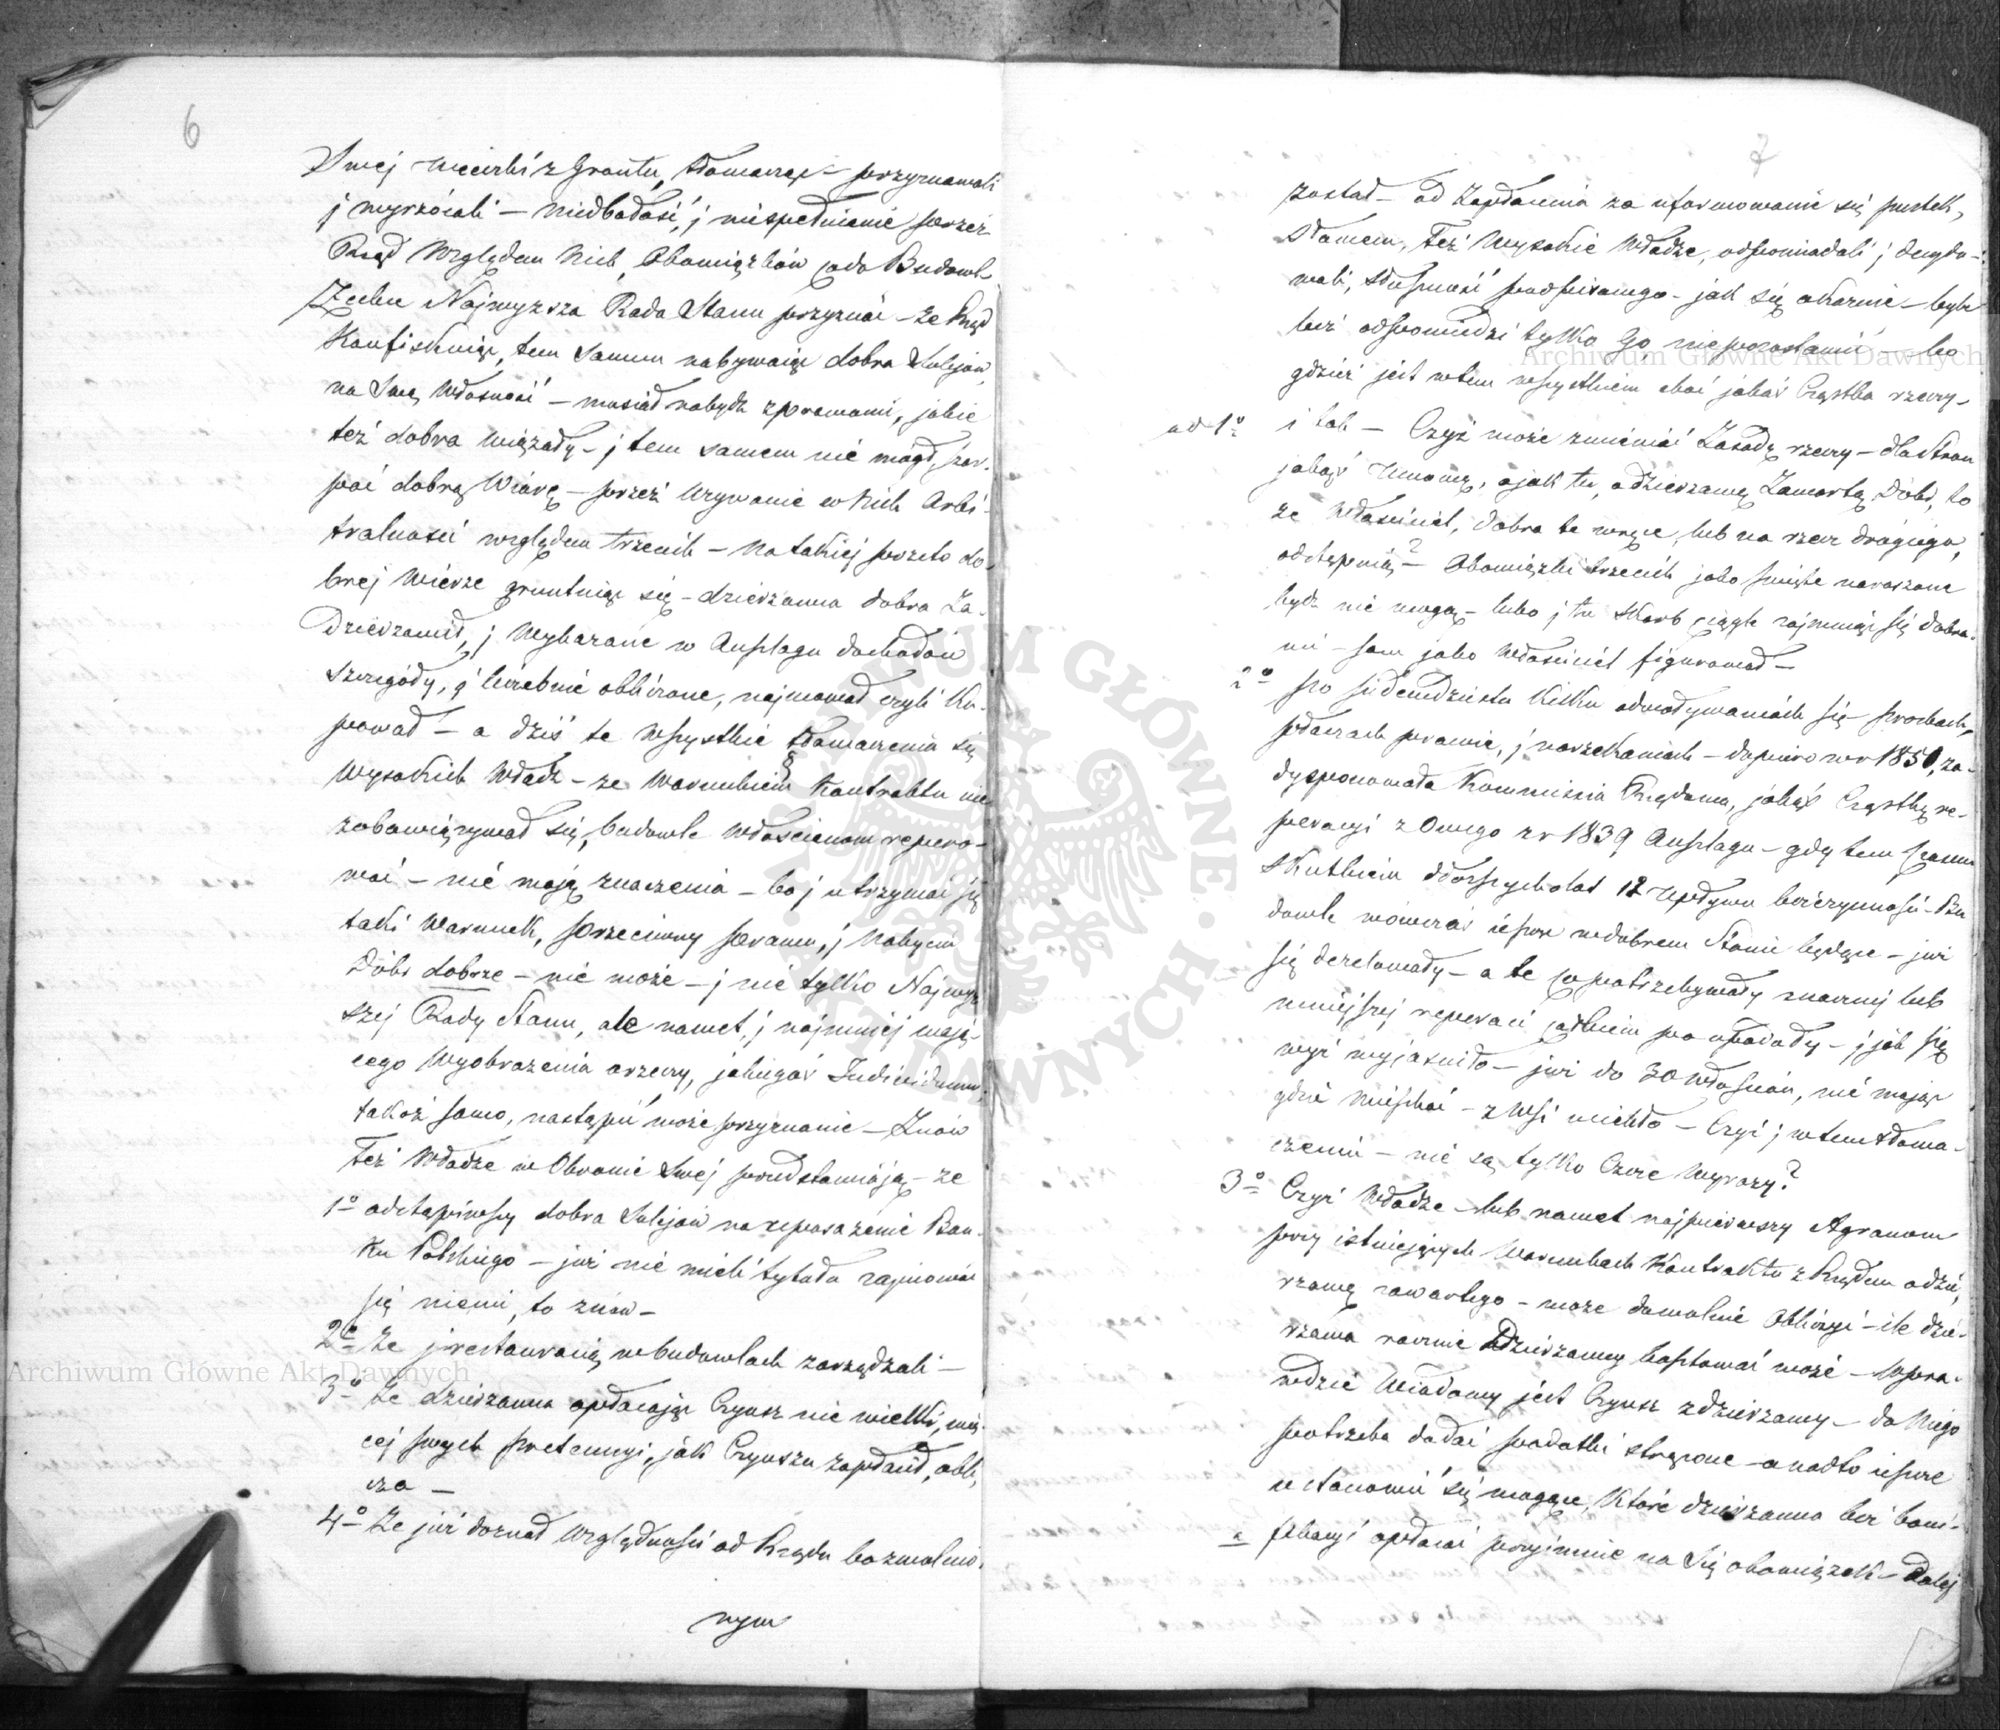 6
Swej ucieczki z Gruntu, tłomacząc – przyznawali
j wyrzócali – niedbałość, j niespełnienie przez
Rząd Względem Nich, Obowiązków codo Budowl
Zechce Najwyzsza Rada Stanu przyznać – że Rząd
Konfiskując, tem samem nabywając dobra Sulejow,
na Swą Własność – musiał nabydz zprawami, jakie
też dobra wiązały – j tem samem nie mógł, zar-
wać dobrą Wiarę – przez Uzywanie w Nich Arbi-
tralności względem trzecich – Na takiej przeto do-
brej Wierze gruntując się – dzierżawca dobra Za-
Dzierzawił, j Wykazane w Anszlagu dochodów
szczegóły, j liczebnie obliczone, najmował czyli Ku-
pował – a dziś te Wszystkie tłomaczenia się
Wysokich Władz – ze Warunkiem § Kontraktu nie
zobowiązywał się, budowle Włościanom repero-
wać – nie mają znaczenia – bo j utrzymać się
taki Warunek, przeciwny prawu, j Nabyciu
Dóbr dobrze – nie może – j nie tylko Najwyż
szej Rady Stanu, ale nawet, j najmniej mają-
cego Wyobrażenia orzeczy, jakiegoś Indiwiduum,
takoż samo, nastąpić może przyznanie – Znów
Też Władze w Obronie Swej przedstawiają – ze
1o odstąpiwszy dobra Sulejów na uposażenie Ban-
ku Polskiego – już nie mieli tytułu zajmować
się niemi, to znów –
2o Ze j restauracią w budowlach zarządzali –
3o Ze dzierzawca opłacając Czynsz nie wielki, wię-
cej swych pretensyi, jak Czynszu zapłacił, obli-
cza –
4o Ze już doznał Względności od Rządu bo zwolnio-
nym
7
został – od Zapłacenia za uformowanie się pustek,
Słowem, Też Wysokie Władze, odpowiadali j decydo-
wali, słuszność podpisanego – jak się okaznie – byle
bez odpowiedzi tylko Go niepozostawić – bo
gdzież jest wtem wszystkiem choć jakaś Cząstka rzeczy –
ad 1o i tak – Czyż może zmieniać Zasadę rzeczy – dla Stron
jakąś Umowę, ajak tu, odzierzawę Zawartą Dóbr, to
ze Właściciel, dobra te na rzecz drógiego,
odstępuią? – Obowiązki trzecich jako święte naruszone
bydz nie mogą – lubo j tu Skarb ciągle zajmując się dobra-
mi – sam jako Właściciel figurował –
2o po siedemdziesiąt Kilku odwoływaniach się – prosbach,
płaczach prawie, j narzekaniach – dopiero w r 1850, za-
dysponowała Kommissia Rządowa, jakąś Cząstkę re-
peracyi z Onego z r 1839 Anszlagu – gdy tem czasem
skutkiem dłoższych lat 12 upływu bezczynności – Bu
dowle wówczas jeszcze w dobrem Stanie będące – już
się dezelowały – a te co potrzebywały znacznej lub
mniejszej reperaci całkiem po upadały – j jak się
wyż wyjasniło – już do 30 Włoscian, nie mając
gdzie mieszkać – z Wsi uciekło – Czyż j w tem tłoma-
czeniu – nie są tylko Czcze Wyrazy?
3o Czyż Władze – lub nawet najpierwszy Agronom
przy istniejących Warunkach Kontraktu z Rządem odzie-
rzawę zawartego – może dowolnie Obliczyć – ile dzie-
rzawa rocznie Dzierzawcę kosztować może – Wpra-
wdzie Wiadomy jest Czynsz z dzierzawy – do Niego
potrzeba dodać podatki strącone – a nadto jeszcze
ustanowić się mogące, Które dzierzawca bez boni-
fikacyi opłacać przyjmuie na Się obowiązek – Dalej
Archiwum Główne Akt Dawnych
Archiwum Główne Akt Dawnych
ARCHIWUM GŁÓWNE AKT DAWNYCH